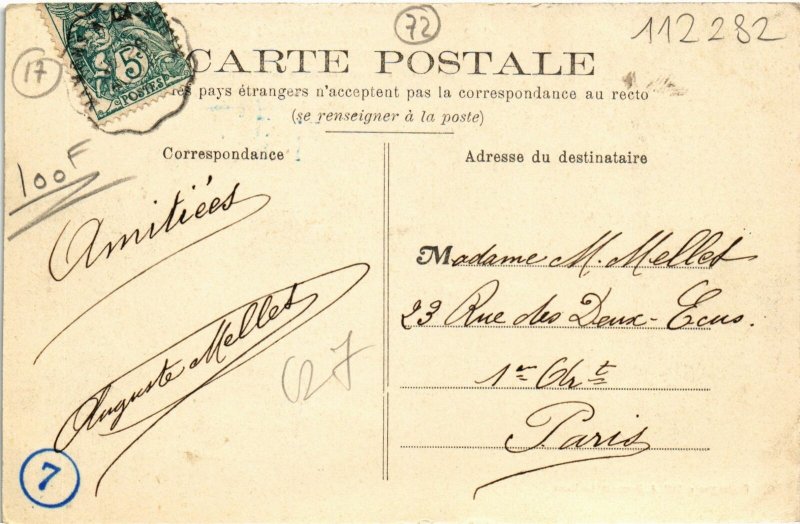 72
112282
17
5c
POSTES
CARTE POSTALE
pays étrangers n'acceptent pas la correspondance au recto
(se renseigner à la poste)
Correspondance
Adresse du destinataire
100F
Amitiées
Auguste Mellet
Madame M. Mellet
23 Rue des Deux-Ecus.
1er Art
Paris
7